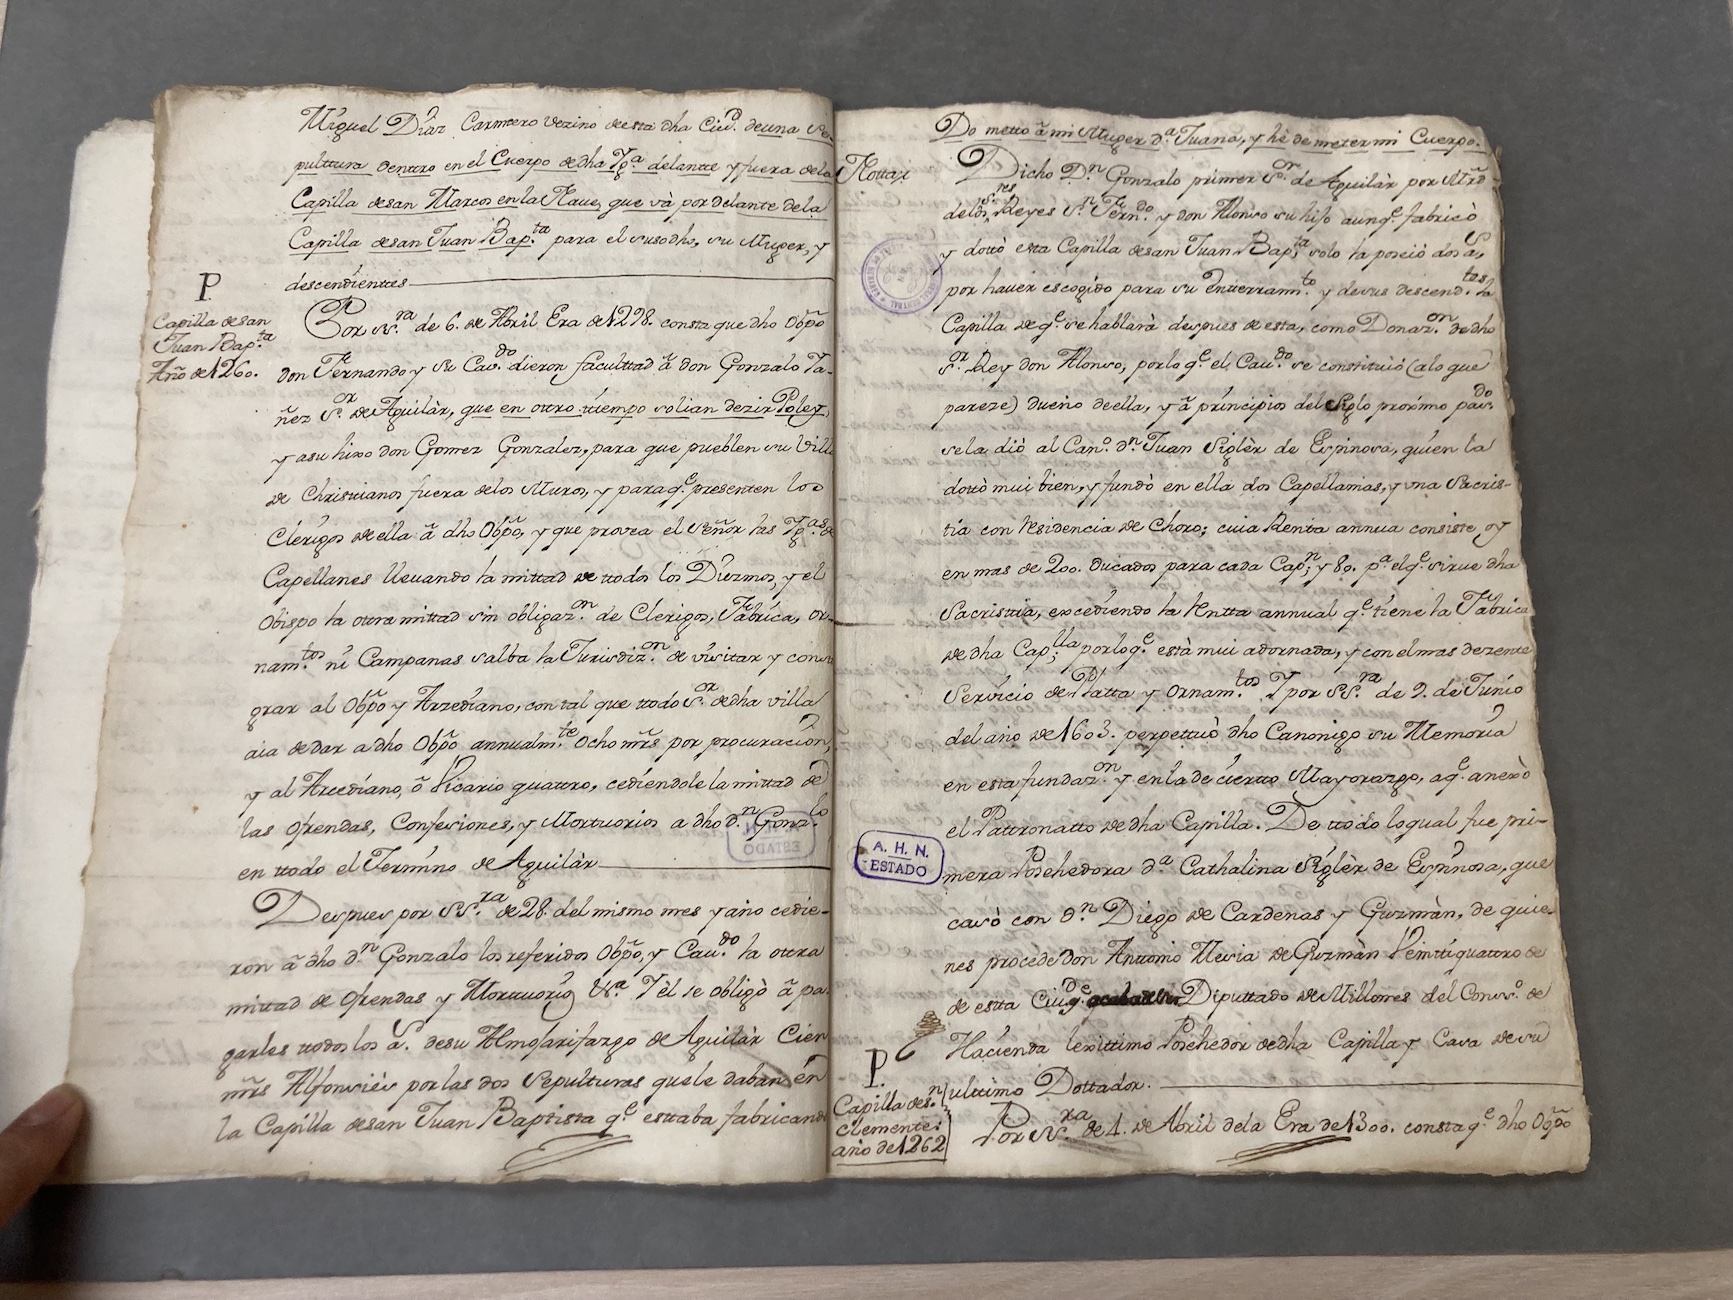 Miguel Diaz Carnizero vezino de esta dha Ciud. de una Se-
pulttura denttro en el Cuerpo de dha Ygª delantte y fuera de la
Capilla de san Marcos en la Naue, que và por delante de la
Capilla de san Juan Bap.ta para el susodho, su Muger, y
descendienttes
P.
Capilla de san
Juan Bap.ta
Año de 1260.
Por ss.ra de 6. de Abril Era de 1298. consta que dho Obp̃o
don Fernando y su Cav.do dieron facultad â don Gonzalo Ya-
ñez S.or de Aguilàr, que en ottro tiempo solian dezir Poley,
y a su hixo don Gomez Gonzalez, para que pueblen su Villa
de Christianos fuera de los Muros, y para q.e presenten los
Clerigos de ella â dho Obp̃o, y que provea el Señor las Yg.as de
Capellanes lleuando la mittad de ttodos los Diezmos, y el
Obispo la ottra mittad sin obligaz.on de Clerigos, Fabrica, or-
nam.tos ni Campanas salba la Jurisdiz.on de visitar y consa
grar al Obp̃o y Arzediano, con tal que ttodo S.or de dha villa
aia de dar a dho Obp̃o annualm.te ocho mr̃s por procuracion,
y al Arcediano, ô Vicario quattro, cediendole la mittad de
las ofrendas, Confesiones, y Mortuorios a dho d.n Gonz.lo
en ttodo el Termino de Aguilàr
Despues por ss.ra de 28. del mismo mes y año cedie-
ron â dho d.n Gonzalo los referidos Obp̃o, y Cau.do la ottra
mittad de ofrendas y Morttuorios &.a Y èl se obligò â pa-
garles ttodos los a.s de su Almojarifazgo de Aguilàr Cien
mr̃s Alfonsies por las dos Sepulturas que le daban en
la Capilla de san Juan Baptista q.e estaba fabricando
Do metto â mi Muger d.a Juana, y hè de meter mi Cuerpo.
Notta
Dicho D.n Gonzalo primer S.or de Aguilàr por Mrd̃
de los S.res Reyes S.n Fern.do y don Alonso su hijo aunq.e fabricò
y dottò esta Capilla de san Juan Bap.ta solo la poseiò dos a.s
por hauer escogido para su Entierram.to y de sus descend.tes la
Capilla de q.e se hablarà despues de esta, como Donaz.on de dho
S.or Rey don Alonso, por lo q.e el Cau.do se constituiò (a lo que
pareze) dueño de ella, y â principios del siglo proximo pas.do
se la diò al Can.o d.n Juan Siglèr de Espinosa, quien la
dottò mui bien, y fundò en ella dos Capellanias, y una Sacris-
tia con residencia de Choro; cuia Renta annua consiste oy
en mas de 200. ducados para cada Cap.n y 80. p.a el q.e sirue dha
Sacristia, excediendo la Rentta annual q.e tiene la Fabrica
de dha Cap.lla por lo q.e està mui adornada, y con el mas dezente
Servicio de Platta y Ornam.tos Y por ss.ra de 9. de Junio
del año de 1603. perpettuò dho Canonigo su Memoria
en esta fundaz.on y en la de ciertto Mayorazgo, a q.e anexò
el Pattronatto de dha Capilla. De ttodo lo qual fue pri-
mera Posehedora d.a Cathalina Siglèr de Espinosa, que
casò con d.n Diego de Cardenas y Guzmàn, de quie-
nes procede don Anttonio Mesia de Guzmàn Veinttiquattro de
de estta Ciud q.e Diputtado de Millones del Cons.o de
Hacienda lexittimo Posehedor de dha Capilla y Casa de su
ulttimo Dottador.
P.
Capilla de s.n
Clemente:
año de 1262
Por ss.ra de 4. de Abril de la Era de 1300. consta q.e dho Obp̃o
A. H. N.
ESTADO